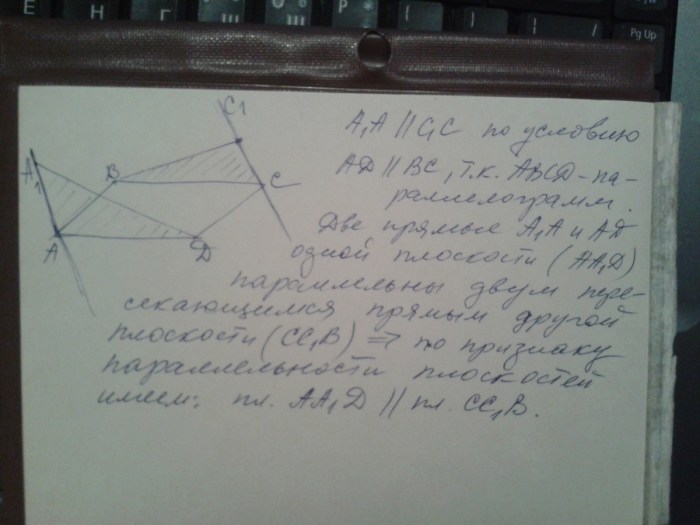 Е Н Г Ш Р [ ] / Pg Up
A₁A || C₁C по условию
AD || BC, т.к. ABCD - па-
раллелограмм.
Две прямые A₁A и AD
одной плоскости (AA₁D)
параллельны двум пере-
секающимся прямым другой
плоскости (CC₁B) ⇒ по признаку
параллельности плоскостей
имеем: пл. AA₁D || пл. CC₁B.
C₁
A₁
B
C
A
D